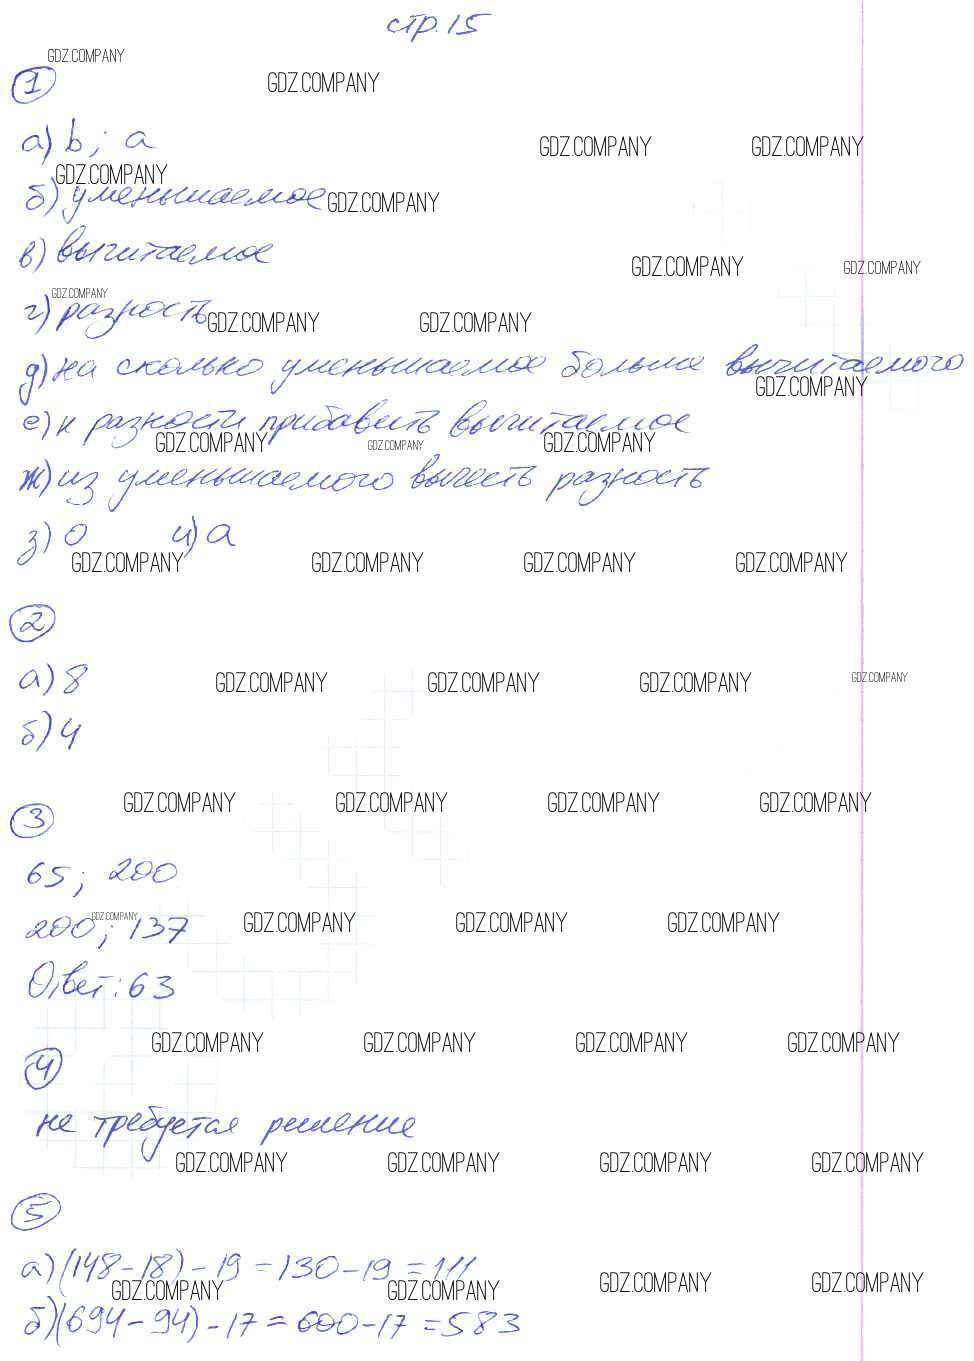 стр. 15
GDZ.COMPANY
① GDZ.COMPANY
а) b; a GDZ.COMPANY GDZ.COMPANY
GDZ.COMPANY
б) уменьшаемое GDZ.COMPANY
в) вычитаемое
GDZ.COMPANY GDZ.COMPANY
GDZ.COMPANY
г) разность GDZ.COMPANY GDZ.COMPANY
д) на сколько уменьшаемое больше вычитаемого
GDZ.COMPANY
е) к разности прибавить вычитаемое
GDZ.COMPANY GDZ.COMPANY GDZ.COMPANY
ж) из уменьшаемого вычесть разность
з) 0 и) a
GDZ.COMPANY GDZ.COMPANY GDZ.COMPANY GDZ.COMPANY
②
а) 8 GDZ.COMPANY GDZ.COMPANY GDZ.COMPANY GDZ.COMPANY
б) 4
GDZ.COMPANY GDZ.COMPANY GDZ.COMPANY GDZ.COMPANY
③
65; 200
GDZ.COMPANY GDZ.COMPANY GDZ.COMPANY GDZ.COMPANY
200; 137
Ответ: 63
GDZ.COMPANY GDZ.COMPANY GDZ.COMPANY GDZ.COMPANY
④
не требуется решение
GDZ.COMPANY GDZ.COMPANY GDZ.COMPANY GDZ.COMPANY
⑤
а) (148 - 18) - 19 = 130 - 19 = 111
GDZ.COMPANY GDZ.COMPANY GDZ.COMPANY GDZ.COMPANY
б) (694 - 94) - 17 = 600 - 17 = 583